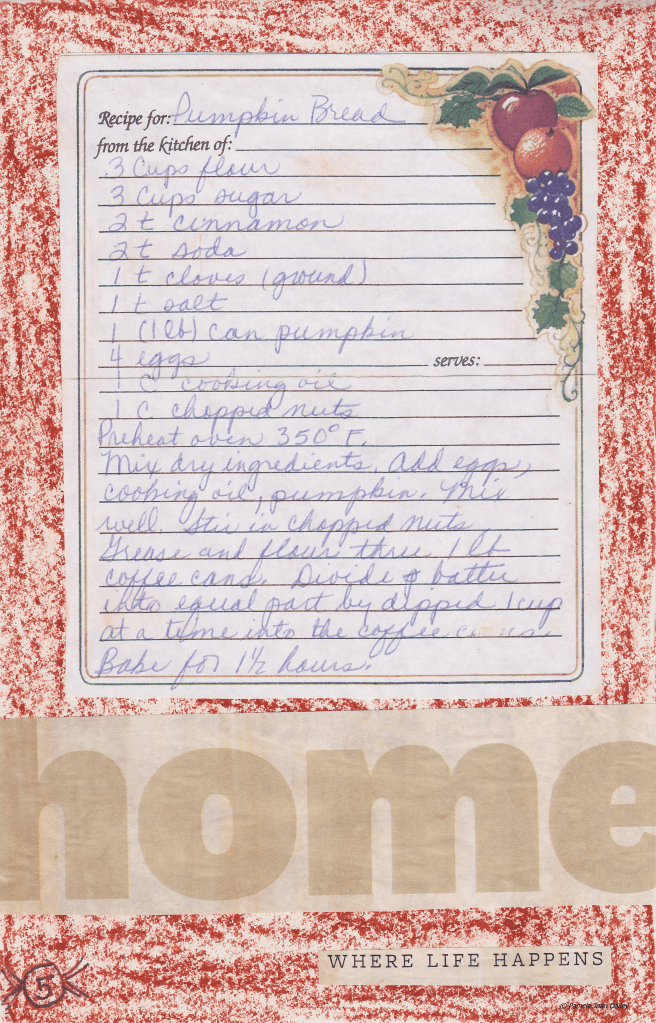 Recipe for: Pumpkin Bread
from the kitchen of:
3 Cups flour
3 Cups sugar
2 t cinnamon
2 t soda
1 t cloves (ground)
1 t salt
1 (1 lb) can pumpkin
4 eggs
serves:
1 C cooking oil
1 C chopped nuts
Preheat oven 350° F.
Mix dry ingredients. Add eggs,
cooking oil, pumpkin. Mix
well. Stir in chopped nuts.
Grease and flour three 1 lb
coffee cans. Divide batter
into equal part by dipped 1 cup
at a time into the coffee cans.
Bake for 1½ hours.
home
WHERE LIFE HAPPENS
5